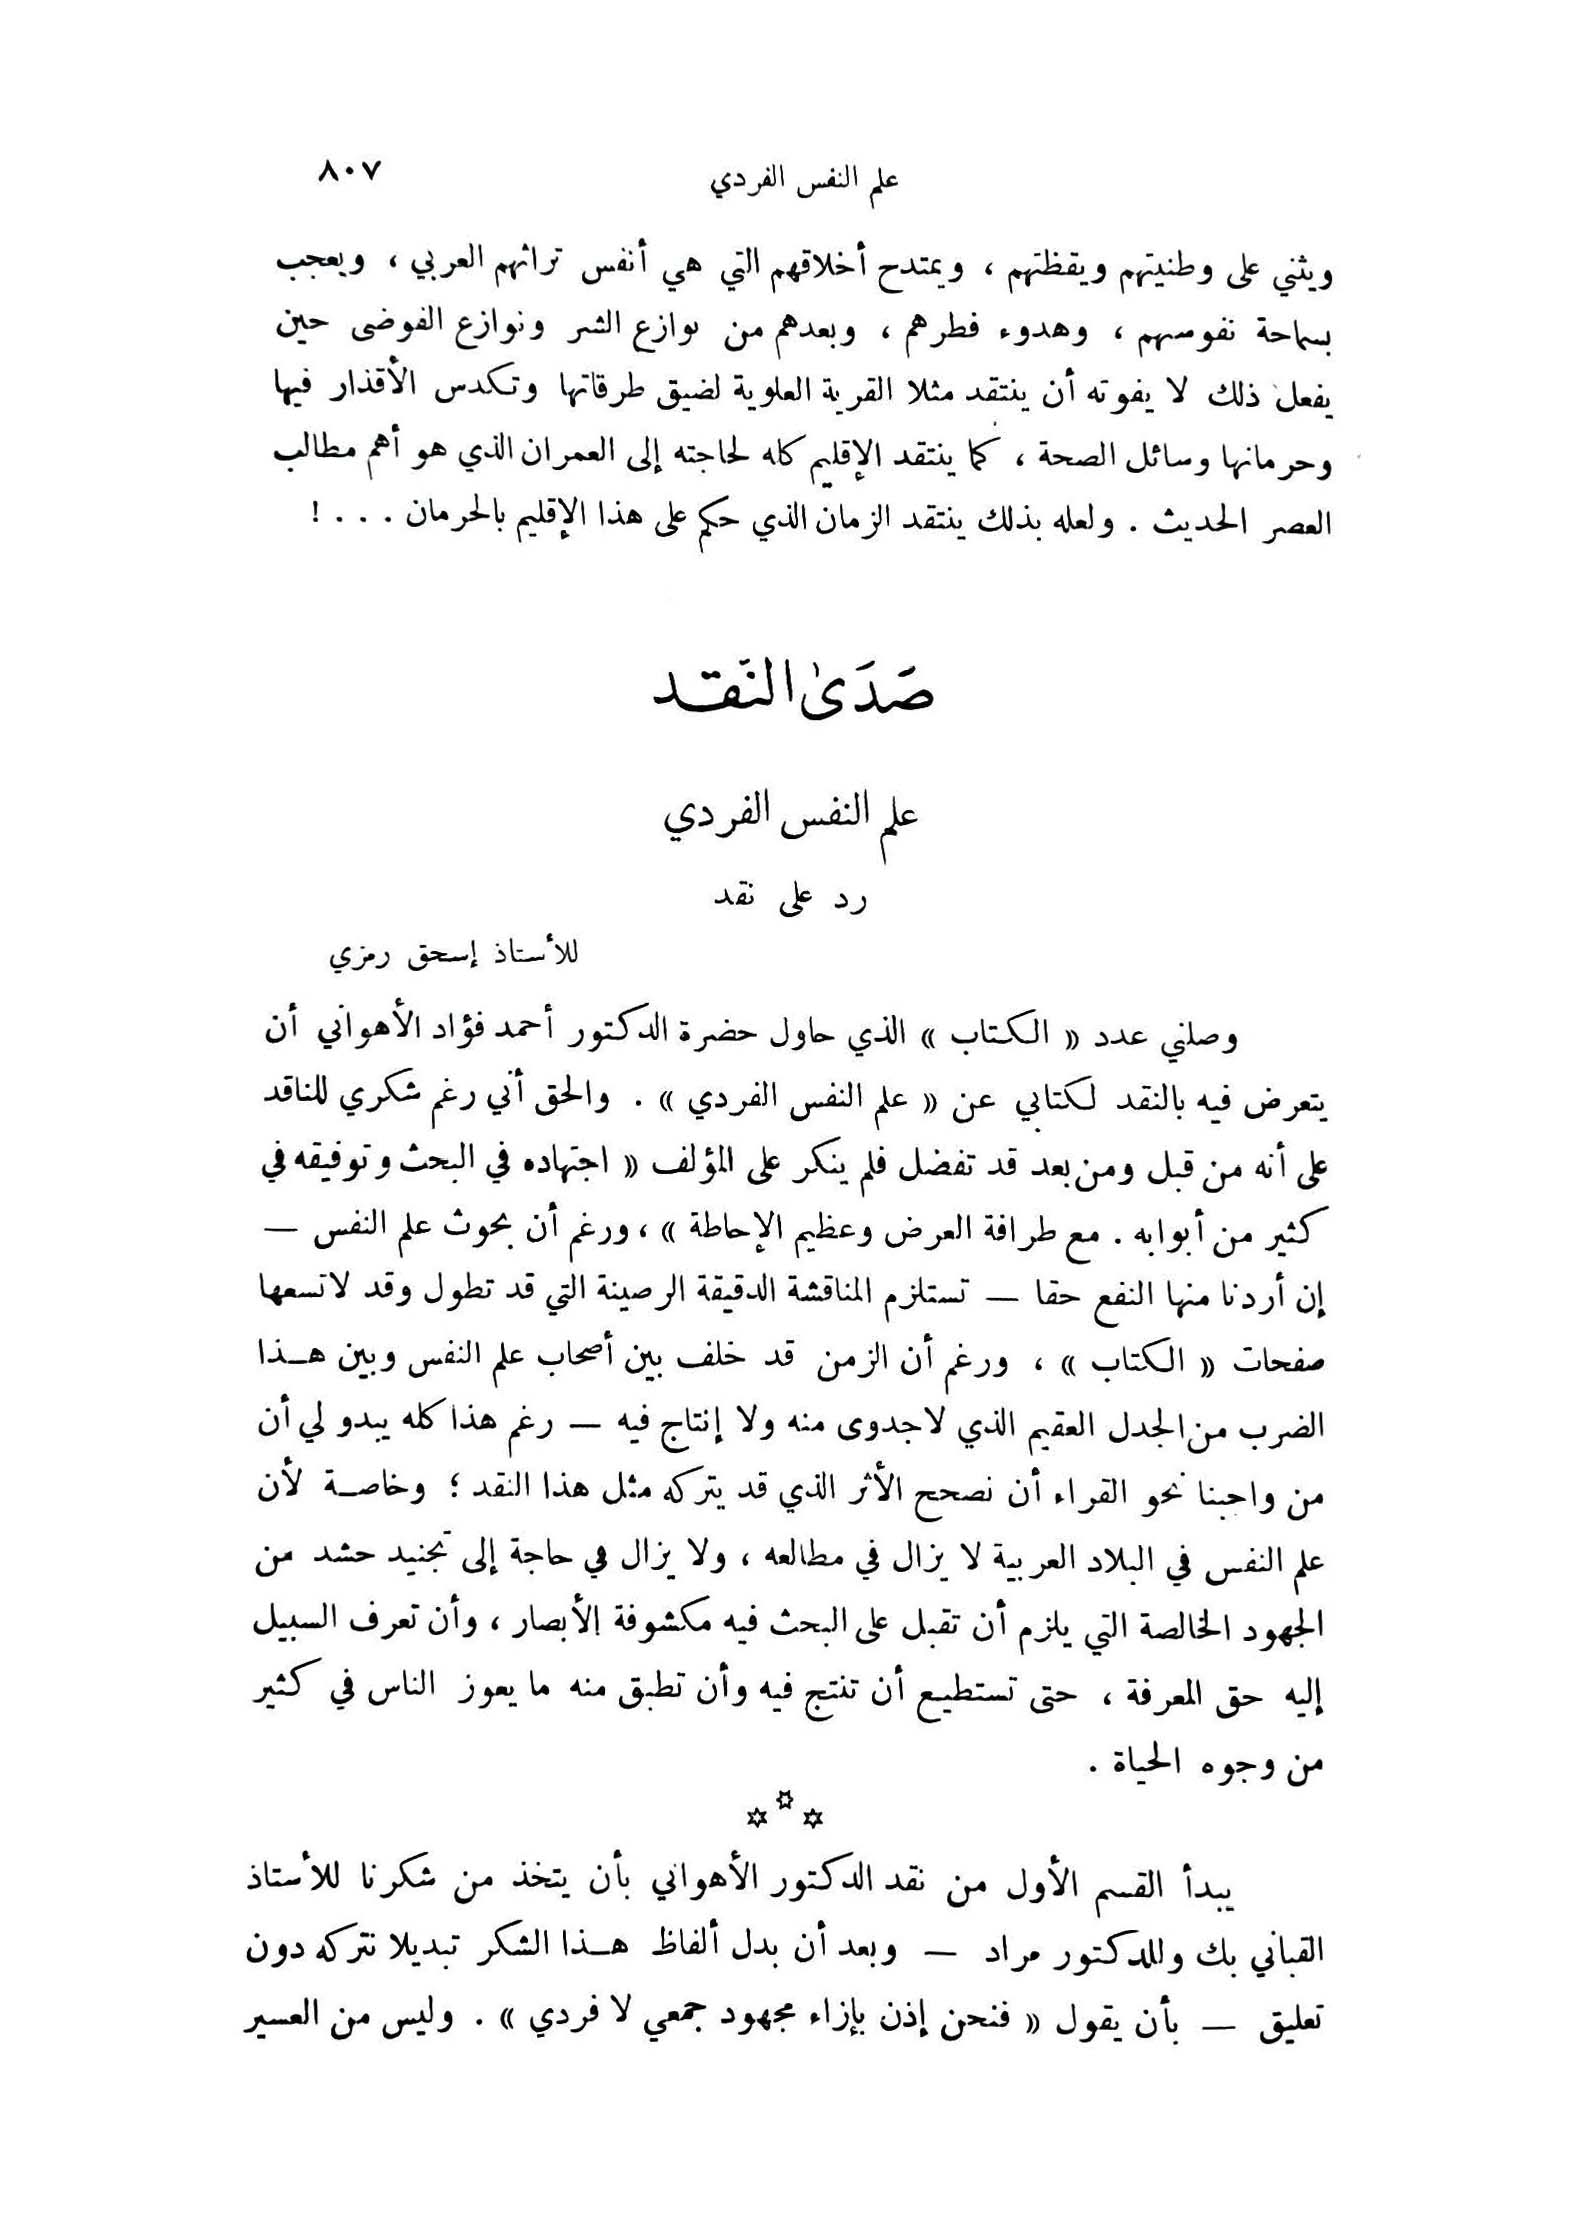 علم النفس الفردي
٨٠٧
ويثني على وطنيتهم ويقظتهم ، ويمتدح أخلاقهم التي هي أنفس تراثهم العربي ، ويعجب
بسماحة نفوسهم ، وهدوء فطرهم ، وبعدهم من نوازع الشر ونوازع الفوضى حين
يفعل ذلك لا يفوته أن ينتقد مثلا القرية العلوية لضيق طرقاتها وتكدس الأقذار فيها
وحرمانها وسائل الصحة ، كما ينتقد الإقليم كله لحاجته إلى العمران الذي هو أهم مطالب
العصر الحديث . ولعله بذلك ينتقد الزمان الذي حكم على هذا الإقليم بالحرمان . . . !
صَدَىٰ النَقد
علم النفس الفردي
رد على نقد
للأستاذ إسحق رمزي
وصلني عدد « الكتاب » الذي حاول حضرة الدكتور أحمد فؤاد الأهواني أن
يتعرض فيه بالنقد لكتابي عن « علم النفس الفردي » . والحق أني رغم شكري للناقد
على أنه من قبل ومن بعد قد تفضل فلم ينكر على المؤلف « اجتهاده في البحث وتوفيقه في
كثير من أبوابه . مع طرافة العرض وعظيم الإحاطة » ، ورغم أن بحوث علم النفس —
إن أردنا منها النفع حقا — تستلزم المناقشة الدقيقة الرصينة التي قد تطول وقد لا تسعها
صفحات « الكتاب » ، ورغم أن الزمن قد خلف بين أصحاب علم النفس وبين هذا
الضرب من الجدل العقيم الذي لا جدوى منه ولا إنتاج فيه — رغم هذا كله يبدو لي أن
من واجبنا نحو القراء أن نصحح الأثر الذي قد يتركه مثل هذا النقد ؛ وخاصة لأن
علم النفس في البلاد العربية لا يزال في مطالعه ، ولا يزال في حاجة إلى تجنيد حشد من
الجهود الخالصة التي يلزم أن تقبل على البحث فيه مكشوفة الأبصار ، وأن تعرف السبيل
إليه حق المعرفة ، حتى تستطيع أن تنتج فيه وأن تطبق منه ما يعوز الناس في كثير
من وجوه الحياة .
يبدأ القسم الأول من نقد الدكتور الأهواني بأن يتخذ من شكرنا للأستاذ
القباني بك وللدكتور مراد — وبعد أن بدل ألفاظ هذا الشكر تبديلا نتركه دون
تعليق — بأن يقول « فنحن إذن بإزاء مجهود جمعي لا فردي » . وليس من العسير